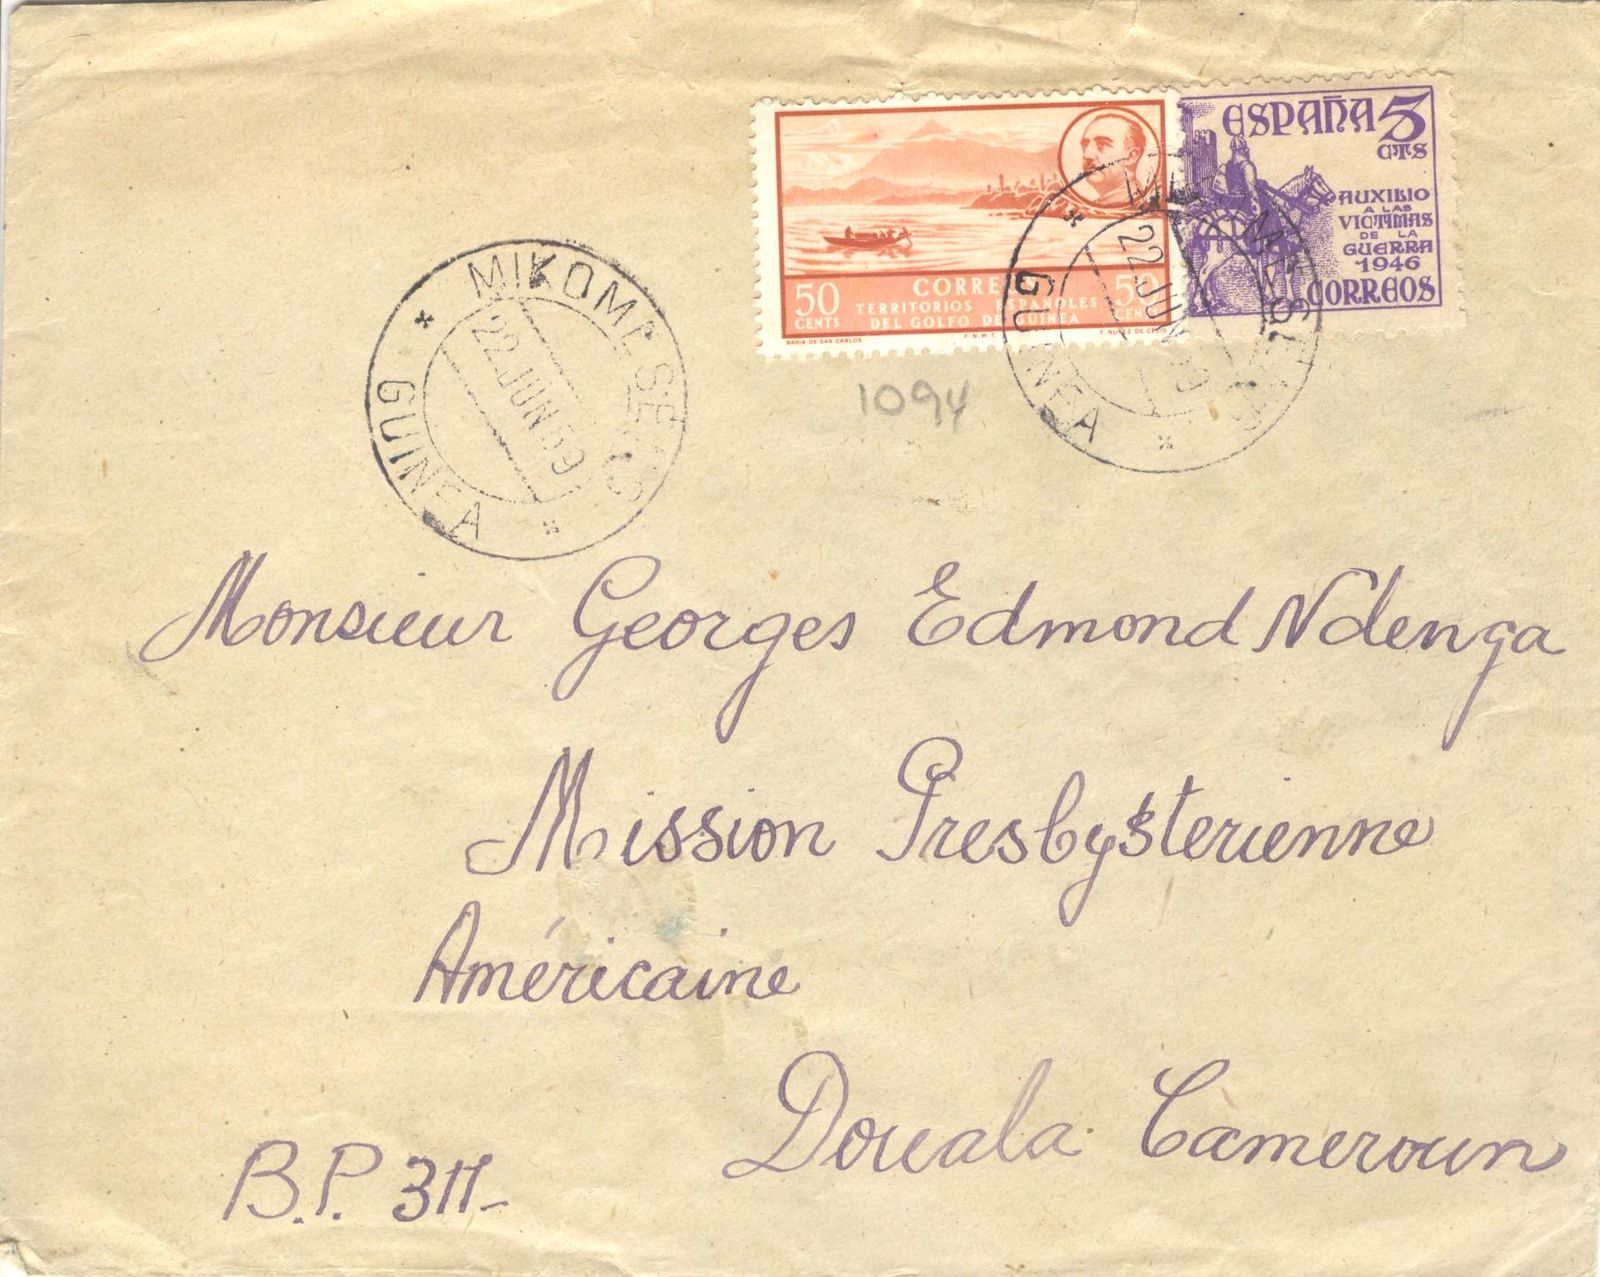 ESPAÑA 5
CTS
AUXILIO
A LAS
VICTIMAS
DE LA
GUERRA
1946
CORREOS
50 CENTS
TERRITORIOS ESPAÑOLES
DEL GOLFO DE GUINEA
BAHIA DE SAN CARLOS F.N.M.T.
MIKOMESENG
22.JUN 59
GUINEA
22 JUN
GUINEA
1094
Monsieur Georges Edmond Ndenga
Mission Presbysterienne
Américaine
Douala Cameroun
B.P. 311